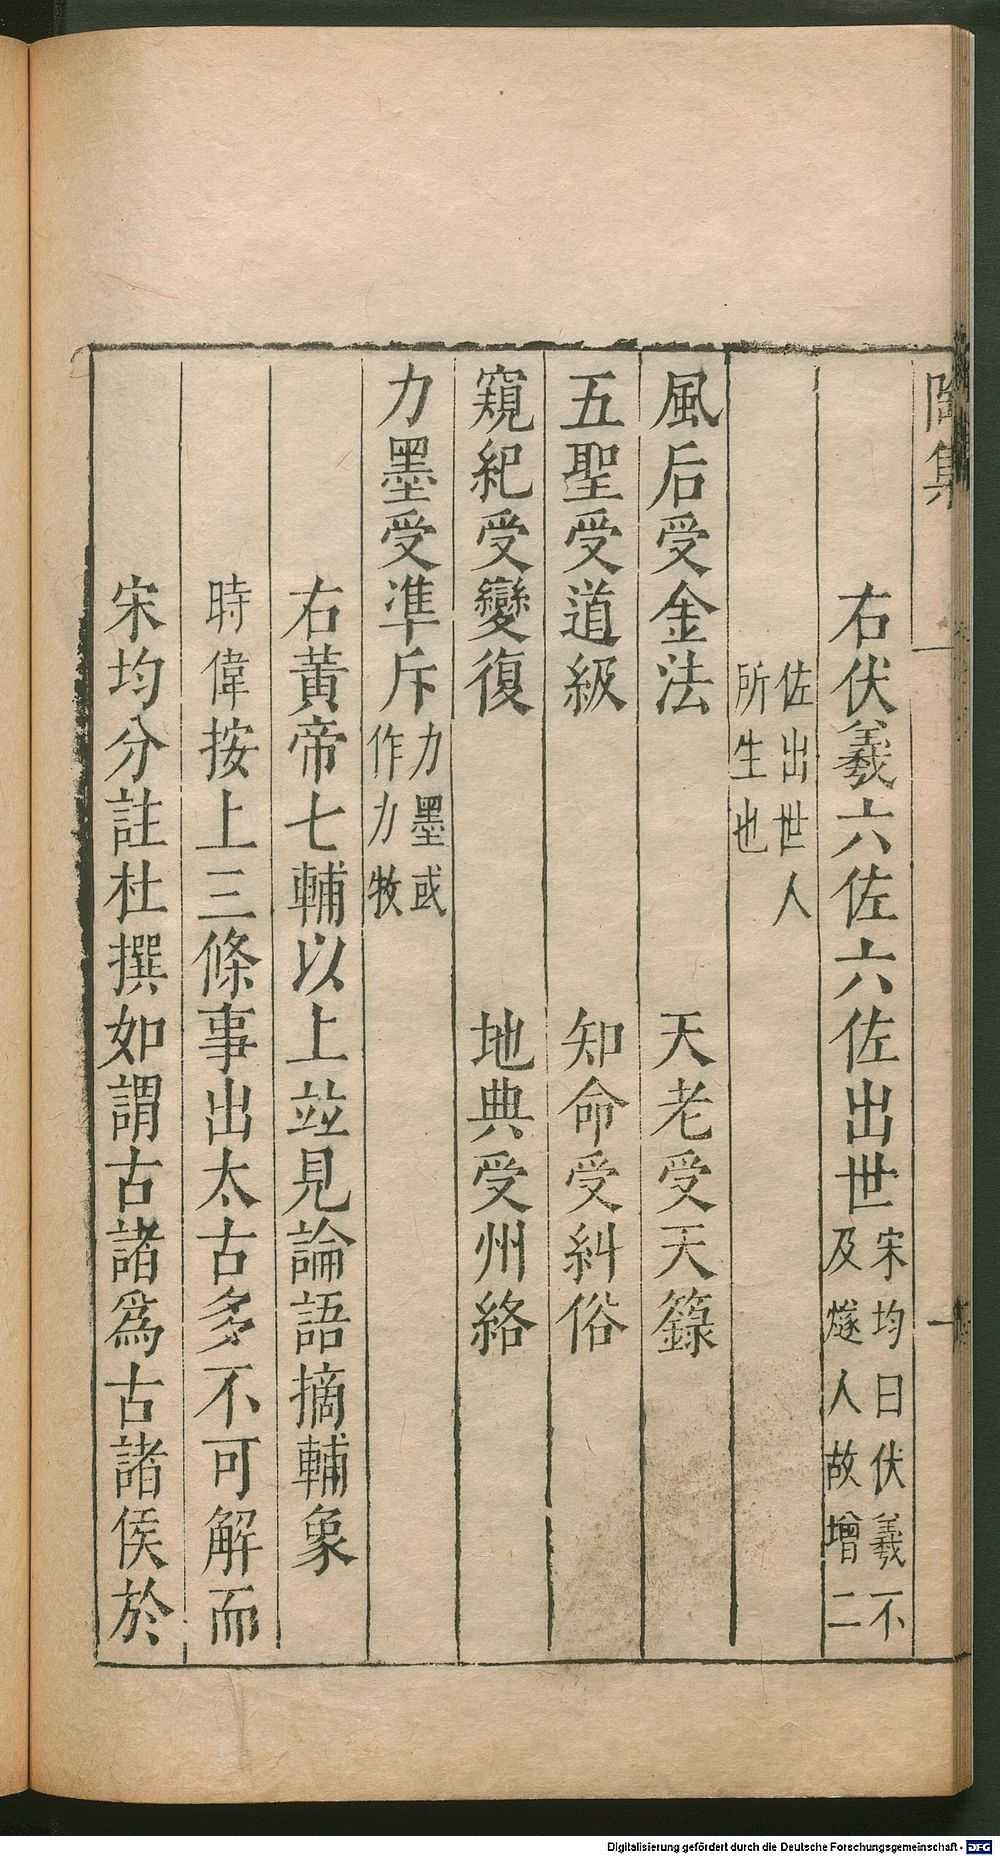 右伏羲六佐六佐出世宋均曰伏羲不及燧人故增二
佐出世人所生也
風后受金法　天老受天籙
五聖受道級　知命受糾俗
窺紀受變復　地典受州絡
力墨受凖斥力墨或作力牧
右黃帝七輔以上並見論語摘輔象
時偉按上三條事出太古多不可解而
宋均分註杜撰如謂古諸爲古諸侯於
Digitalisierung gefördert durch die Deutsche Forschungsgemeinschaft - DFG